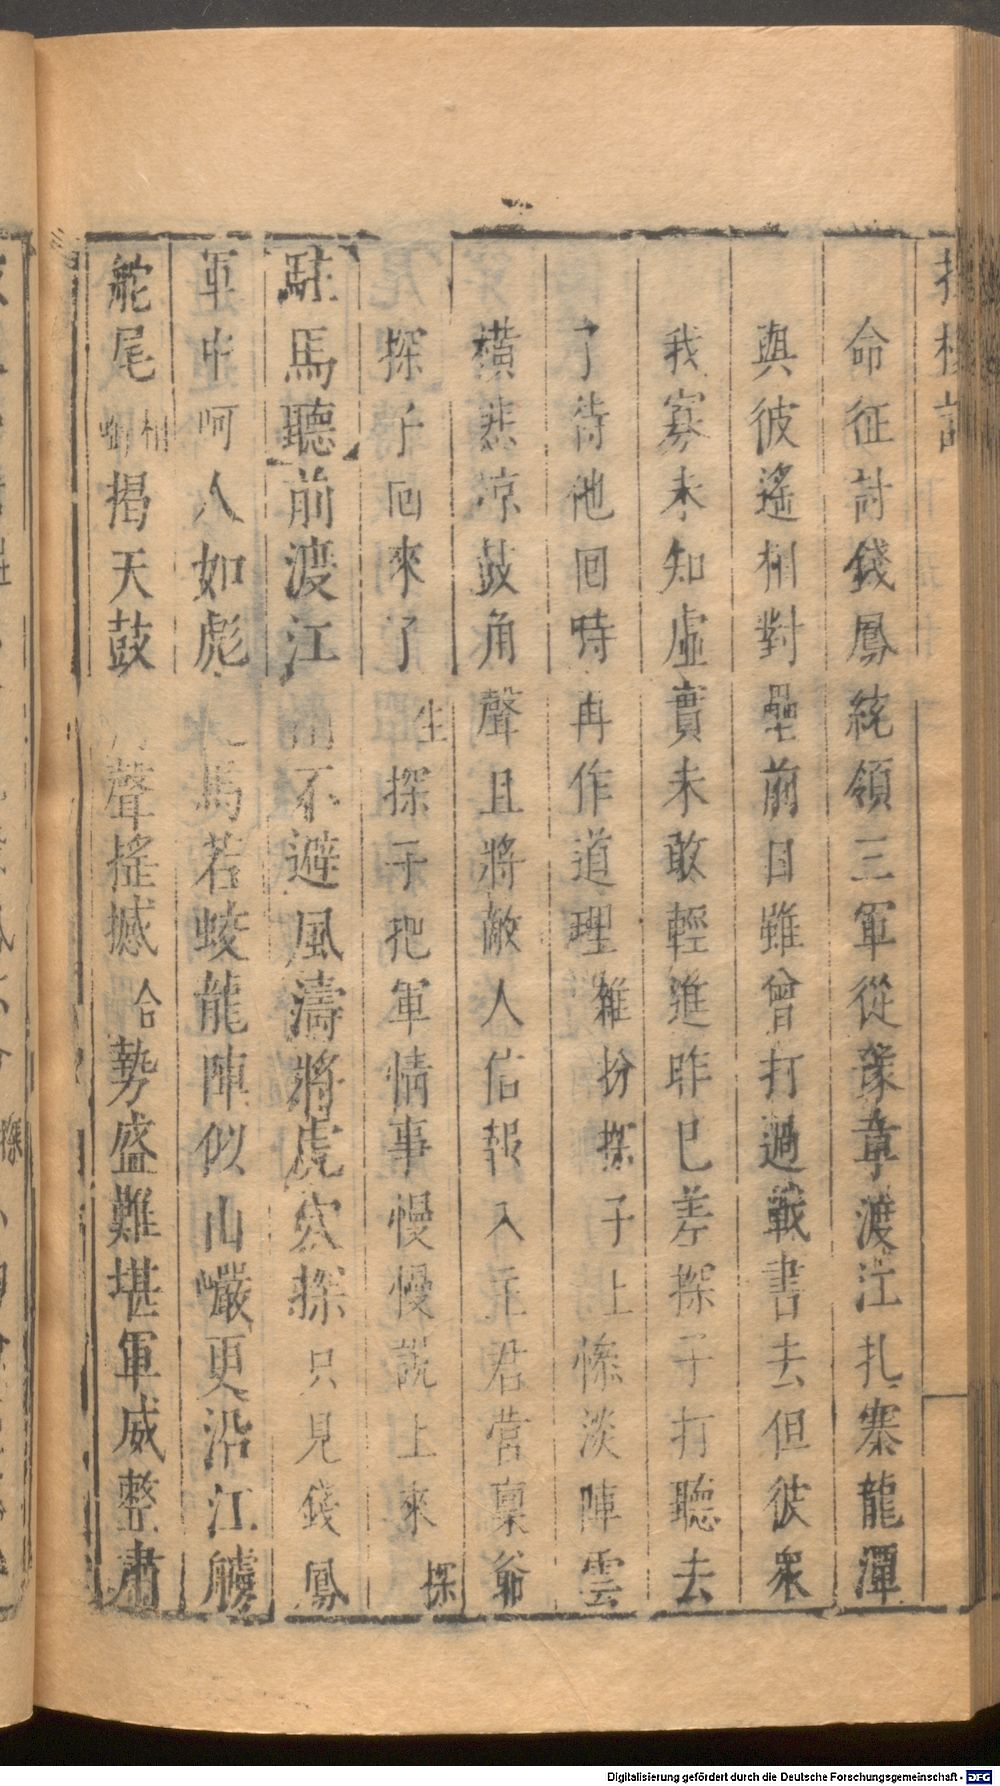 命征討錢鳳統領三軍從豫章渡江扎寨龍潭
與彼遙相對壘前日雖曾打過戰書去但彼衆
我寡未知虛實未敢輕進昨已差探子打聽去
了待他回時再作道理雜扮探子上慘淡陣雲
橫悲凉鼓角聲且將敵人信報入主君營稟爺
探子回來了生探子把軍情事慢慢說上來探
駐馬聽前渡江不避風濤將虎穴探只見錢鳳
軍中呵人如彪馬若蛟龍陣似山巖更沿江艣
舵尾相啣揭天鼓聲搖撼合勢盛難堪軍威整肅
Digitalisierung gefördert durch die Deutsche Forschungsgemeinschaft - DFG